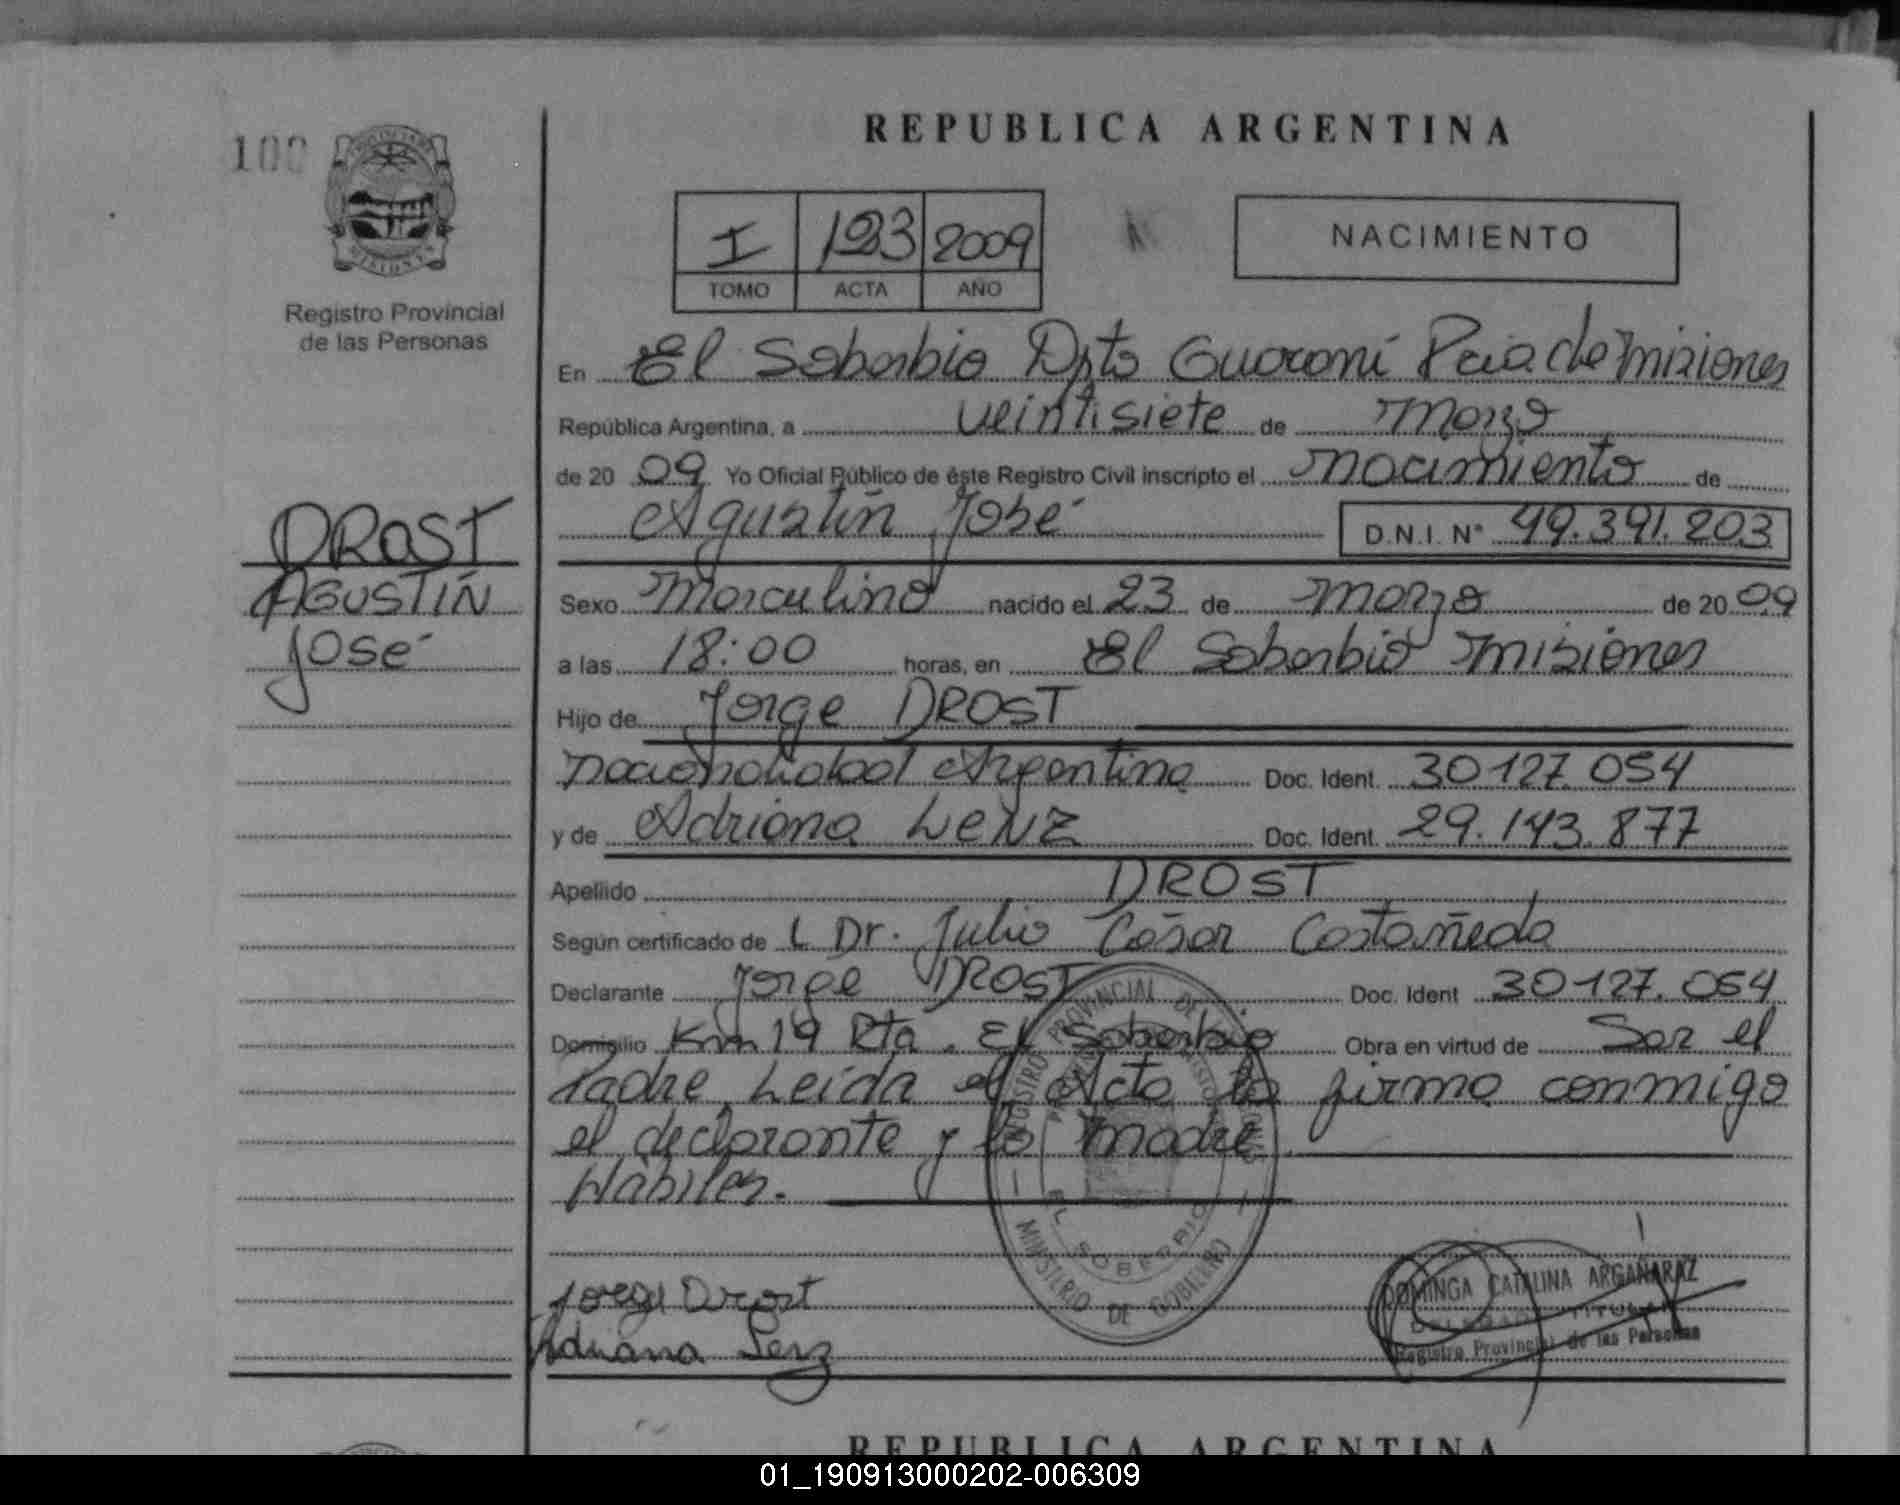 REPUBLICA ARGENTINA
100
PROVINCIA DE
MISIONES
Registro Provincial
de las Personas
I 193 2009
TOMO ACTA AÑO
NACIMIENTO
En El Soberbio Dpto Guaraní Pcia de Misiones
República Argentina, a veintisiete de Marzo
de 2009 Yo Oficial Público de éste Registro Civil inscripto el Nacimiento de
Agustín José D.N.I. N° 49.391.203
DROST
AGUSTÍN
José
Sexo Masculino nacido el 23 de Marzo de 2009
a las 18:00 horas, en El Soberbio Misiones
Hijo de Jorge DROST
nacionalidad Argentina Doc. Ident. 30127.054
y de Adriana LENZ Doc. Ident. 29.143.877
Apellido DROST
Según certificado de L Dr. Julio César Costañeda
Declarante Jorge DROST Doc. Ident 30127.054
Domicilio Km 19 Rta. El Soberbio Obra en virtud de Ser el
Padre. Leída el Acta la firma conmigo
el declarante y la madre.
Hábiles.
REGISTRO PROVINCIAL DE LAS PERSONAS
EL SOBERBIO
MINISTERIO DE GOBIERNO
Jorge Drost
Adriana Lenz
DOMINGA CATALINA ARGAÑARAZ
DELEGADA TITULAR
Registro Provincial de las Personas
REPUBLICA ARGENTINA
01_190913000202-006309